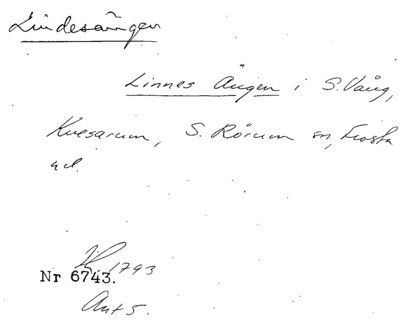 Lindesängen
Linnes Ängen i S. Vång,
Kvesarum, S. Rörum sn, Frosta
hd.
1793
Nr 6743.
Ant 5.